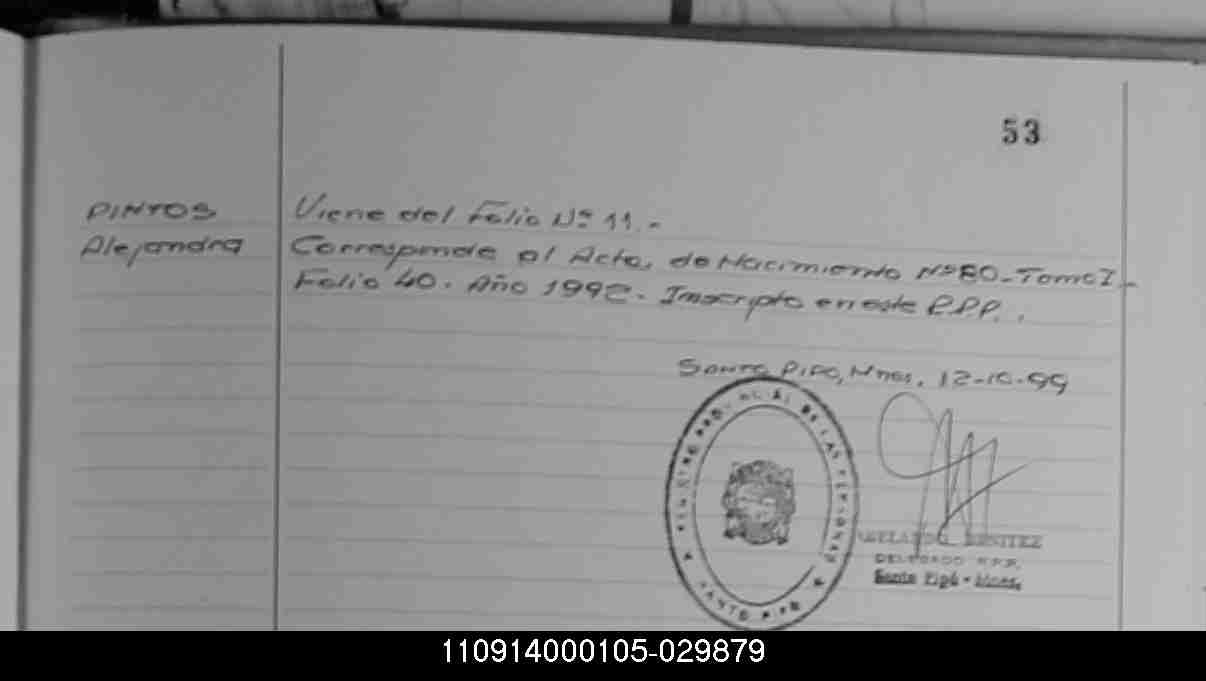 53
PINTOS
Alejandra
Viene del Folio Nº 11.-
Corresponde al Acta, de Nacimiento Nº 80-Tomo I.-
Folio 40. Año 1992. Inscripto en este R.P.P..
Santo Pipó, Mnes, 12-10-99
REGISTRO PROVINCIAL DE LAS PERSONAS
SANTO PIPÓ
BENITEZ
DELEGADO R.P.P.
Santo Pipó - Mnes.
110914000105-029879